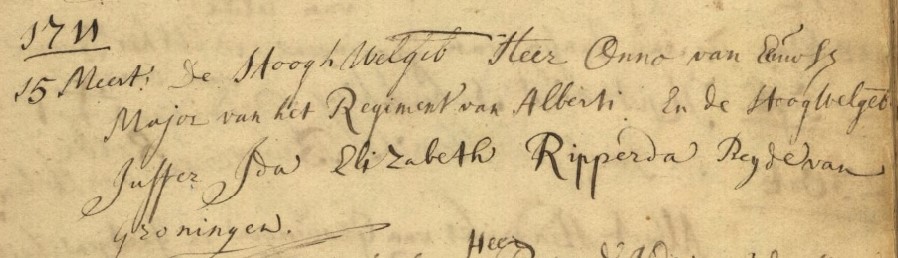 1711
15 Meert: De Hoogh Welgeb Heer Onno van Ewsz
Major van het Regiment van Alberti. En de Hoogwelgeb
Juffer Ida Elizabeth Ripperda Beyde van
Groningen.
Heer